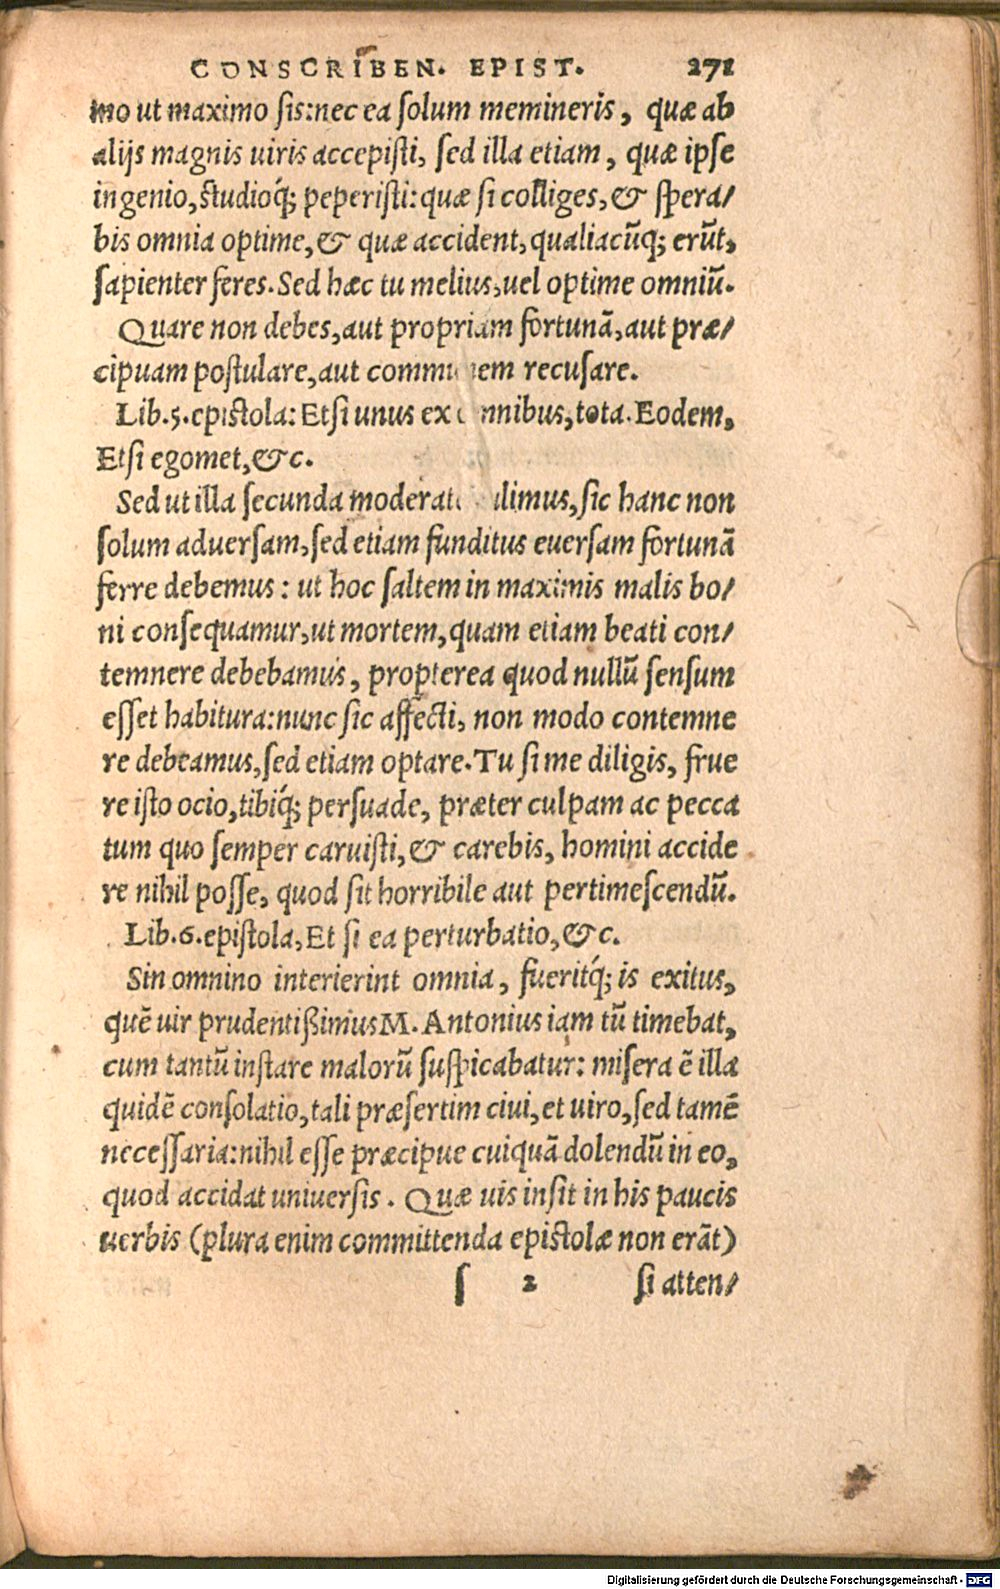 CONSCRIBEN. EPIST. 271
mo ut maximo sis:nec ea solum memineris, quæ ab
alijs magnis uiris accepisti, sed illa etiam, quæ ipse
ingenio, studioq́; peperisti: quæ si colliges, & spera/
bis omnia optime, & quæ accident, qualiacũq; erũt,
sapienter feres. Sed hæc tu melius, uel optime omniũ.
Quare non debes, aut propriam fortunã, aut præ/
cipuam postulare, aut communem recusare.
Lib.5.epistola: Etsi unus ex omnibus, tota. Eodem,
Etsi egomet, &c.
Sed ut illa secunda moderat ulimus, sic hanc non
solum aduersam, sed etiam funditus euersam fortunã
ferre debemus: ut hoc saltem in maximis malis bo/
ni consequamur, ut mortem, quam etiam beati con/
temnere debebamus, propterea quod nullũ sensum
esset habitura: nunc sic affecti, non modo contemne
re debeamus, sed etiam optare. Tu si me diligis, frue
re isto ocio, tibiq́; persuade, præter culpam ac pecca
tum quo semper caruisti, & carebis, homini accide
re nihil posse, quod sit horribile aut pertimescendũ.
Lib.6.epistola, Et si ea perturbatio, &c.
Sin omnino interierint omnia, fueritq́; is exitus,
quẽ uir prudentißimus M. Antonius iam tũ timebat,
cum tantũ instare malorũ suspicabatur: misera ẽ illa
quidẽ consolatio, tali præsertim ciui, et uiro, sed tamẽ
necessaria: nihil esse præcipue cuiquã dolendũ in eo,
quod accidat uniuersis. Quæ uis insit in his paucis
uerbis (plura enim committenda epistolæ non erãt)
s 2 si atten/
Digitalisierung gefördert durch die Deutsche Forschungsgemeinschaft - DFG